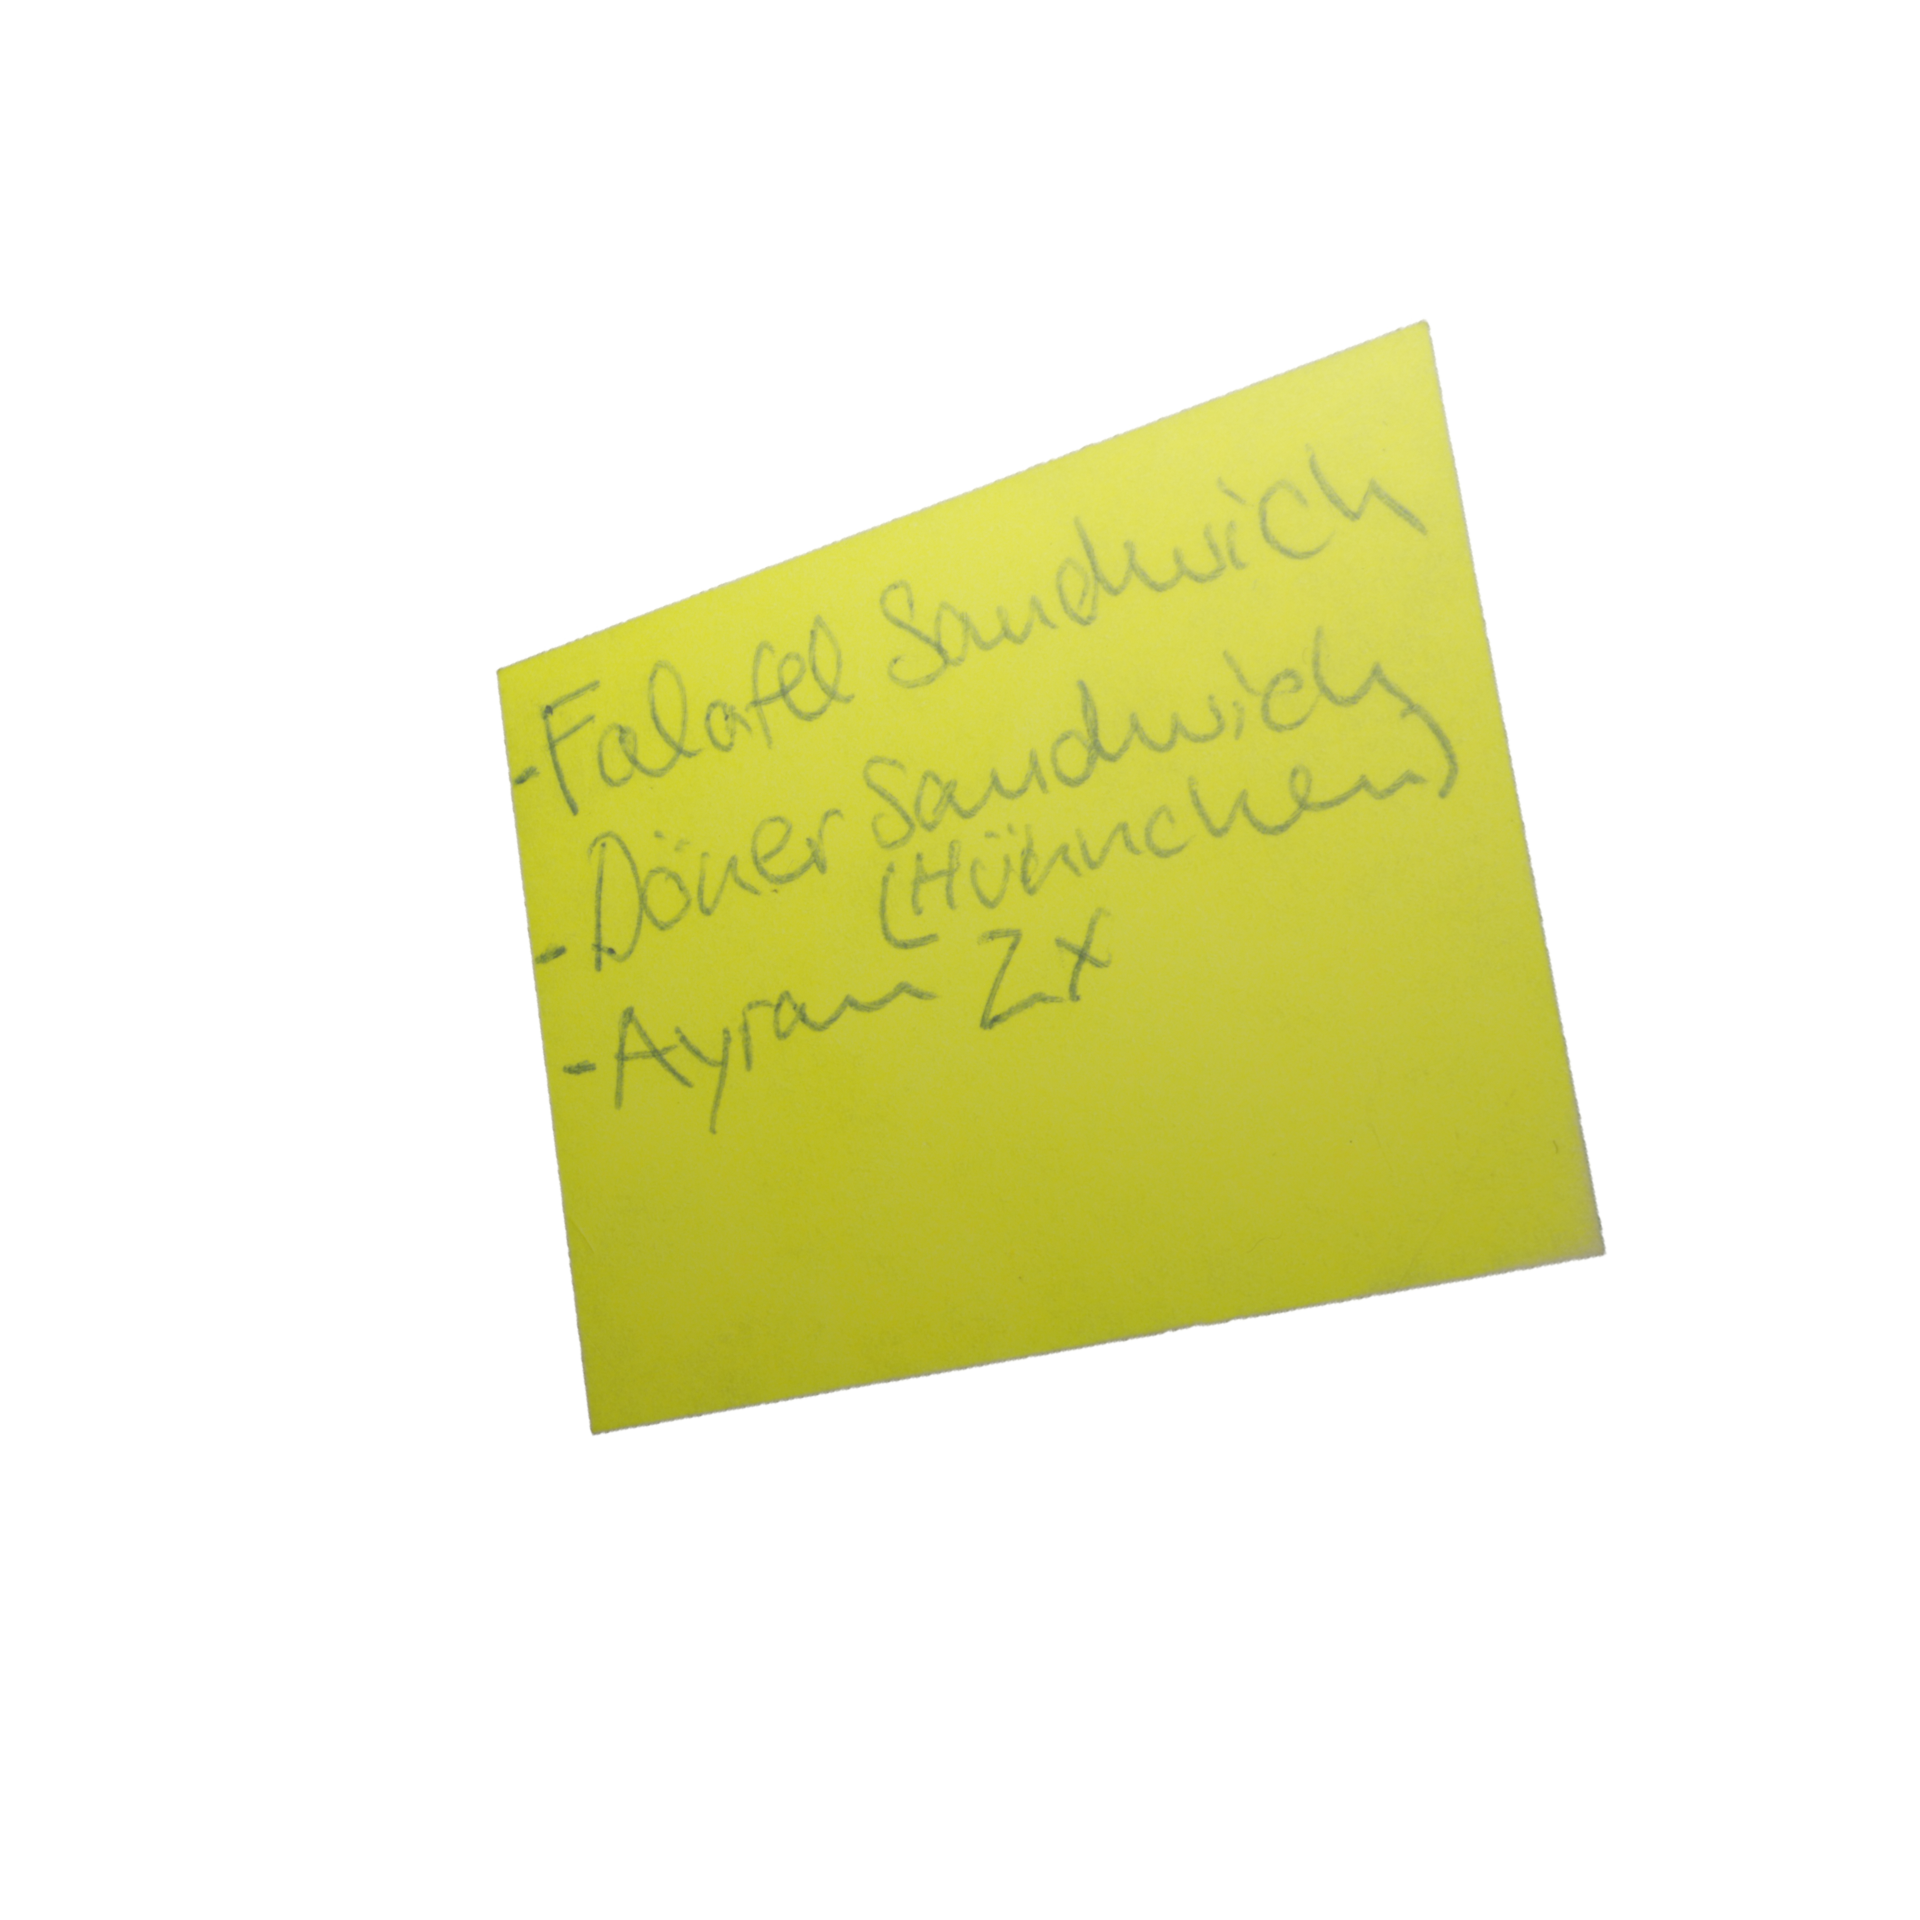 -Falafel Sandwich
- Döner Sandwich
(Hühnchen)
- Ayran 2x